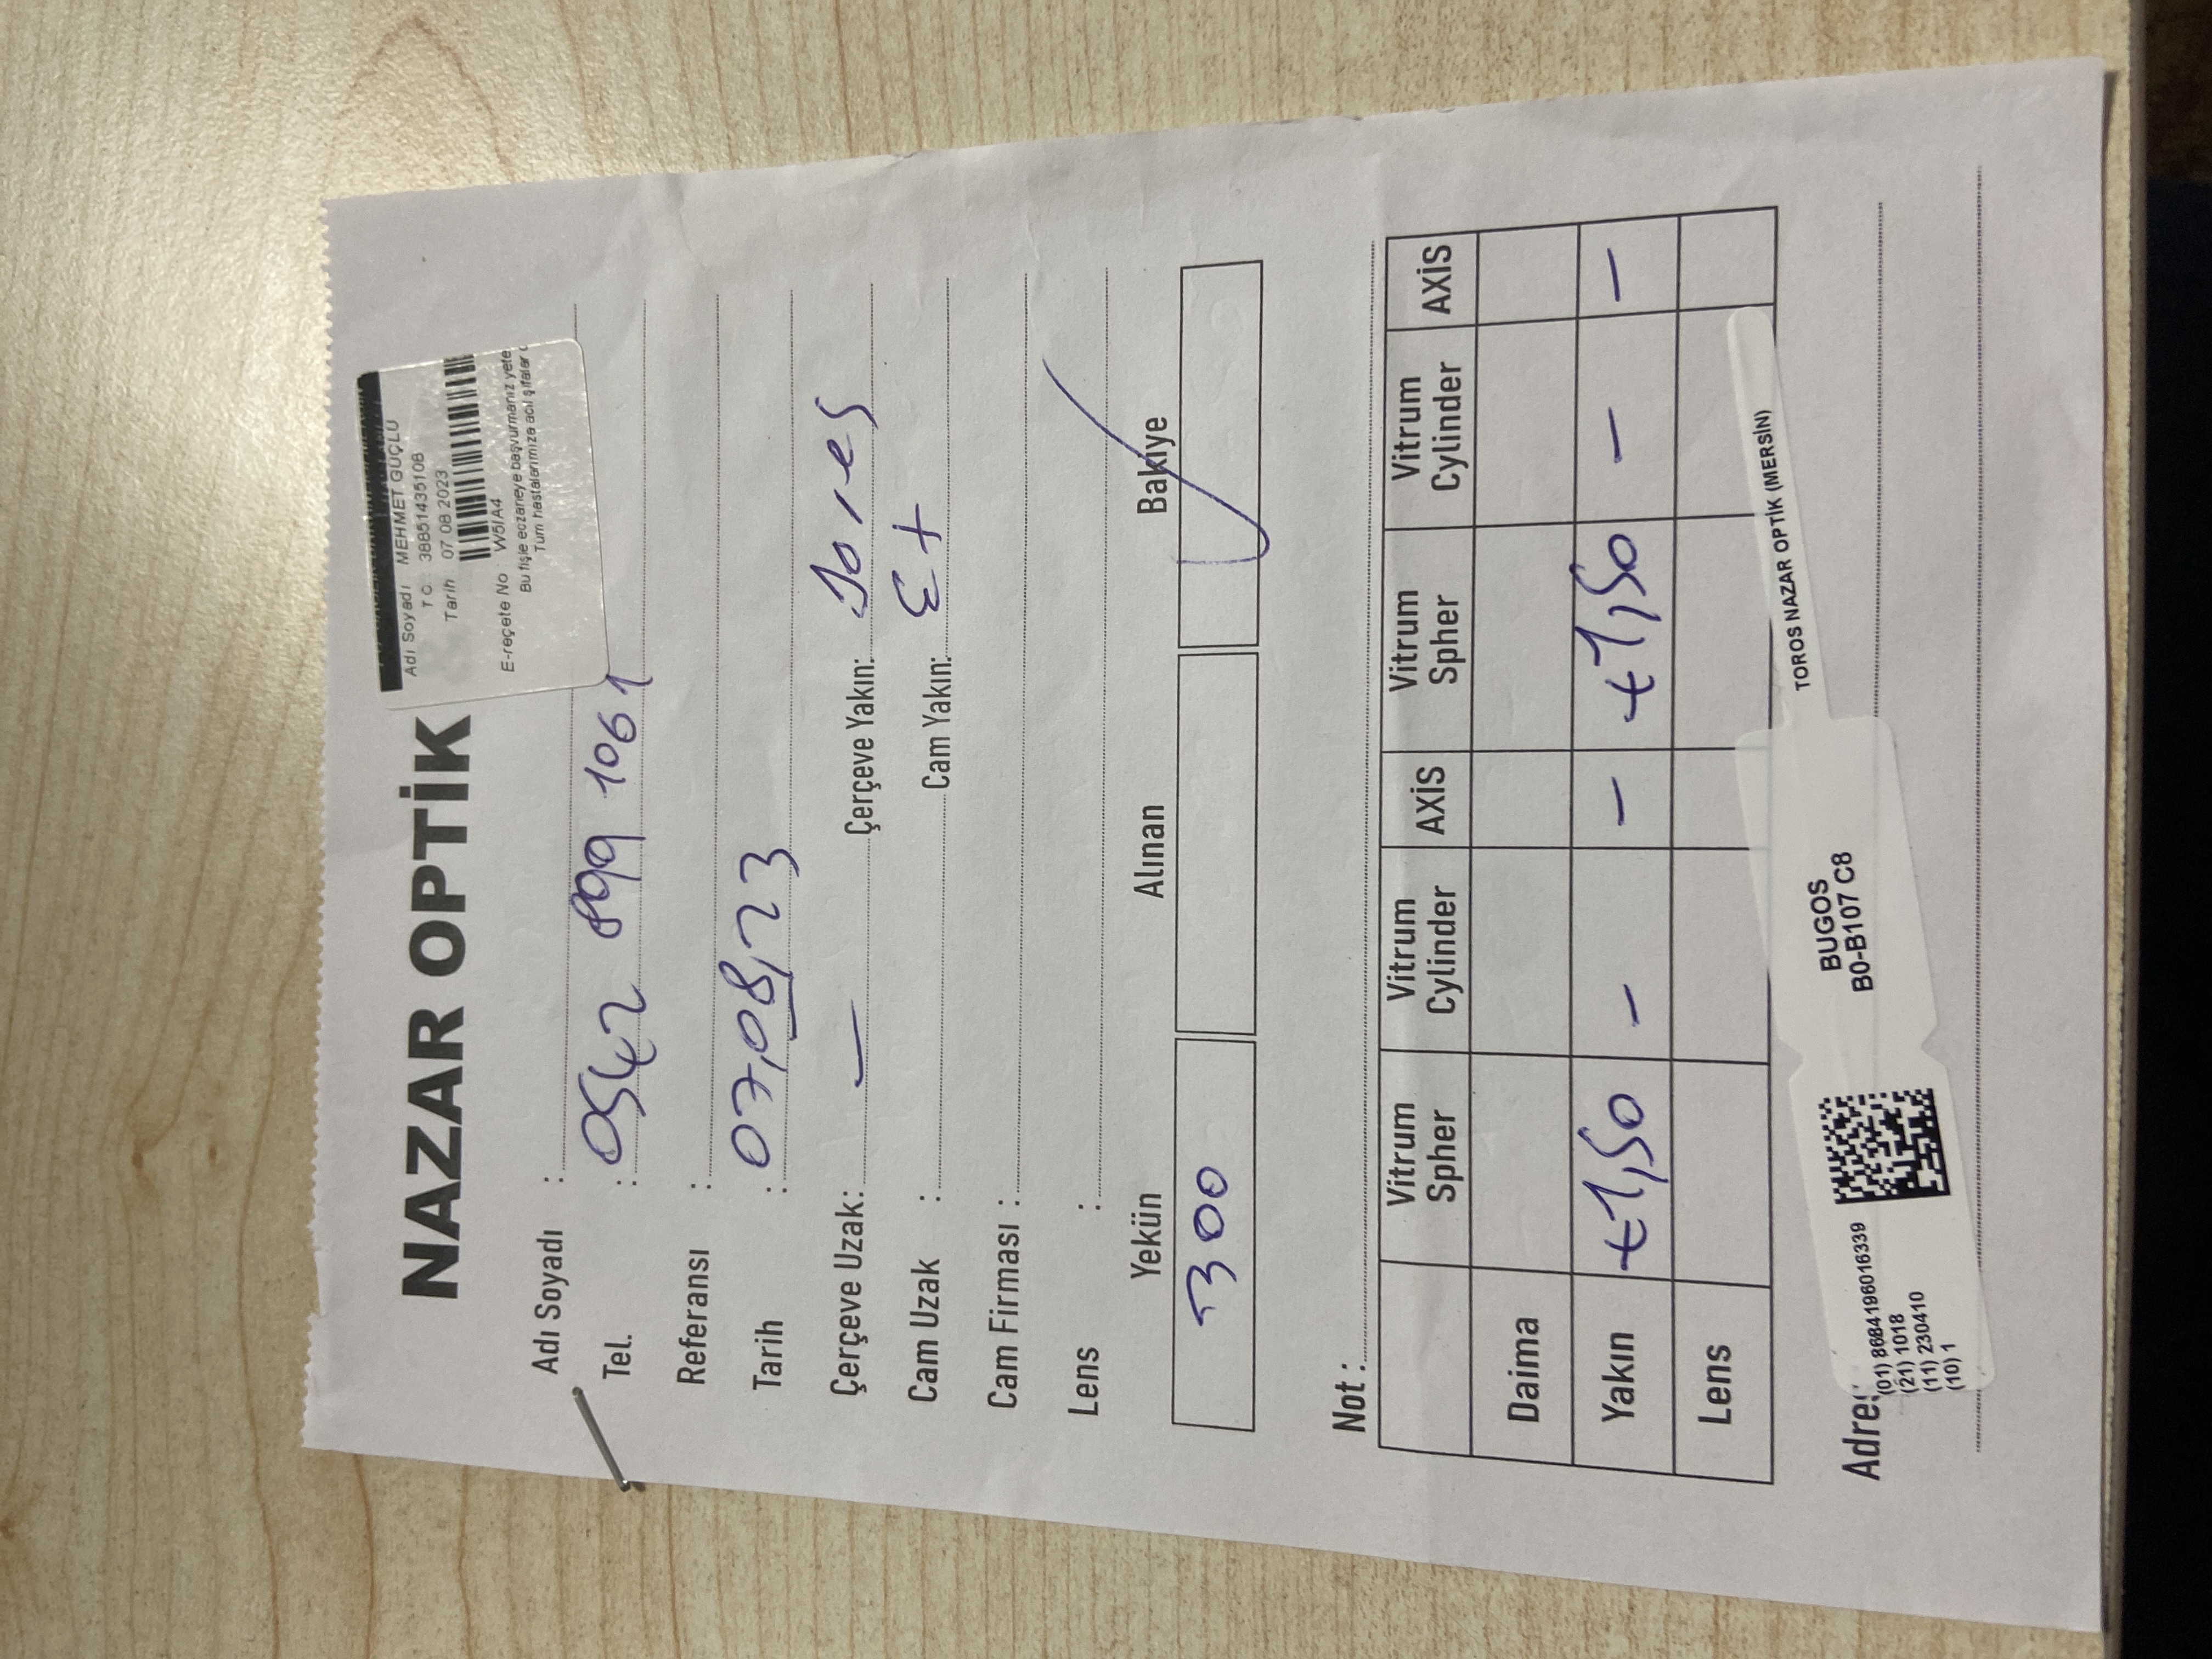 NAZAR OPTİK
Adı Soyadı MEHMET GÜÇLÜ
TC 38851435108
Tarih 07.08.2023
E-reçete No W5IA4
Bu fişle eczaneye başvurmanız yete
Tüm hastalarımıza acil şifalar
Adı Soyadı :
Tel. : 0542 899 1061
Referansı :
Tarih : 07,08,23
Çerçeve Uzak: — Çerçeve Yakın:
Cam Uzak : Cam Yakın:
Cam Firması :
Lens :
Yekün Alınan Bakiye
300 ✓
Not :
Vitrum Spher Vitrum Cylinder AXİS Vitrum Spher Vitrum Cylinder AXİS
Daima
Yakın +1,50 - - +1,50 - -
Lens
TOROS NAZAR OPTİK (MERSİN)
BUGOS
B0-B107 C8
Adres
(01) 8684196016339
(21) 1018
(11) 230410
(10) 1